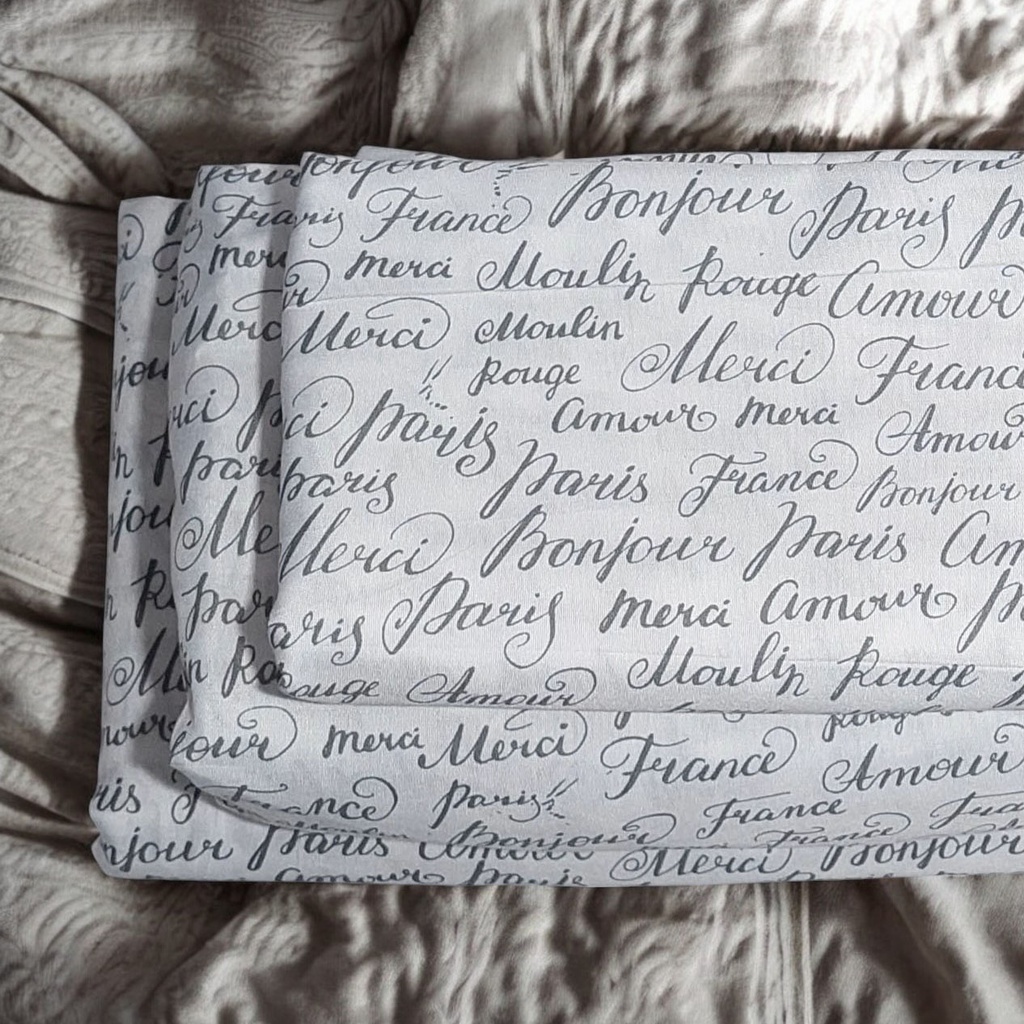 France Bonjour Paris
merci Moulin Rouge Amour
Merci Merci Moulin
Rouge Merci France
Paris Amour merci Amour
paris paris Paris France Bonjour
Merci Bonjour Paris
Paris merci Amour
Moulin Rouge
Rouge Amour
merci Merci France Amour
paris France
Bonjour France
Paris Merci Bonjour
Amour